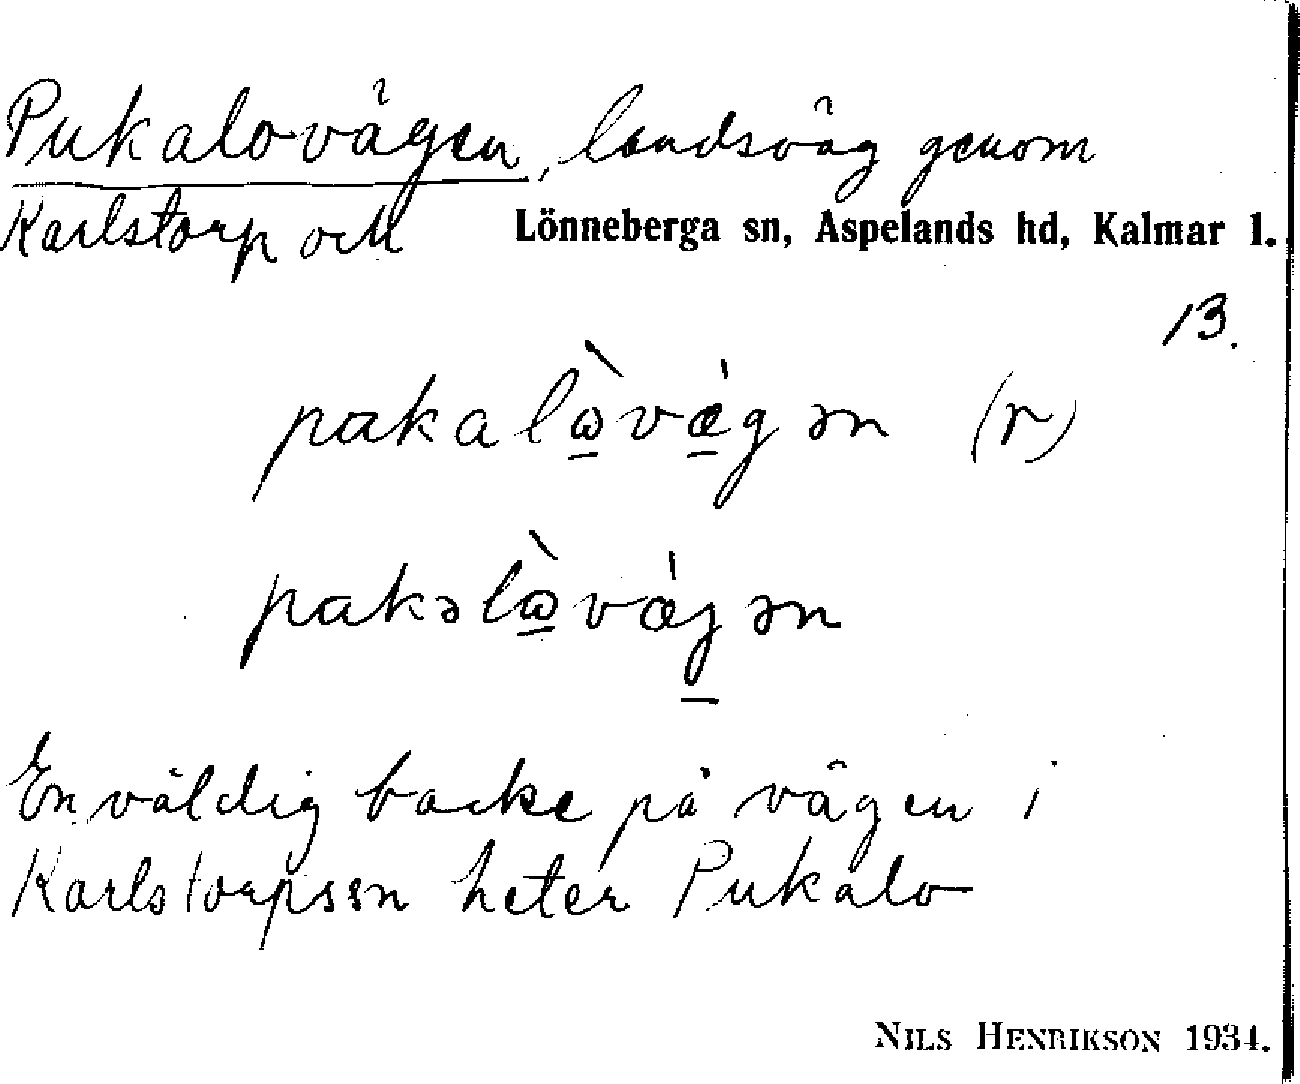 Pukalovägen, landsväg genom
Karlstorp och Lönneberga sn, Aspelands hd, Kalmar l.
13.
pɑkalὼ̲vǽ̲gən (r)
pɑkəlὼ̲vǽg̲ən
En väldig backe på vägen i
Karlstorpssn heter Pukalo
NILS HENRIKSON 1934.